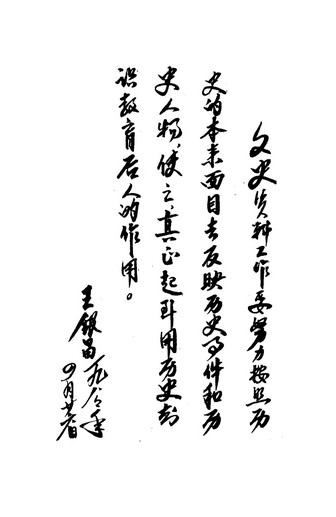 文史资料工作要努力按照历
史的本来面目去反映历史事件和历
史人物，使之真正起到用历史知
识教育后人的作用。
王银昌一九八年
四月廿日